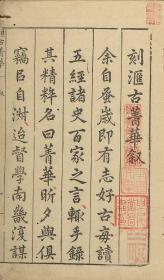 刻滙古菁華敘
余自蚤歲即有志好古每讀
五經諸史百家之言輒手錄
其精粹名曰菁華昕夕與俱
竊臣自洲治督學南畿淳謀